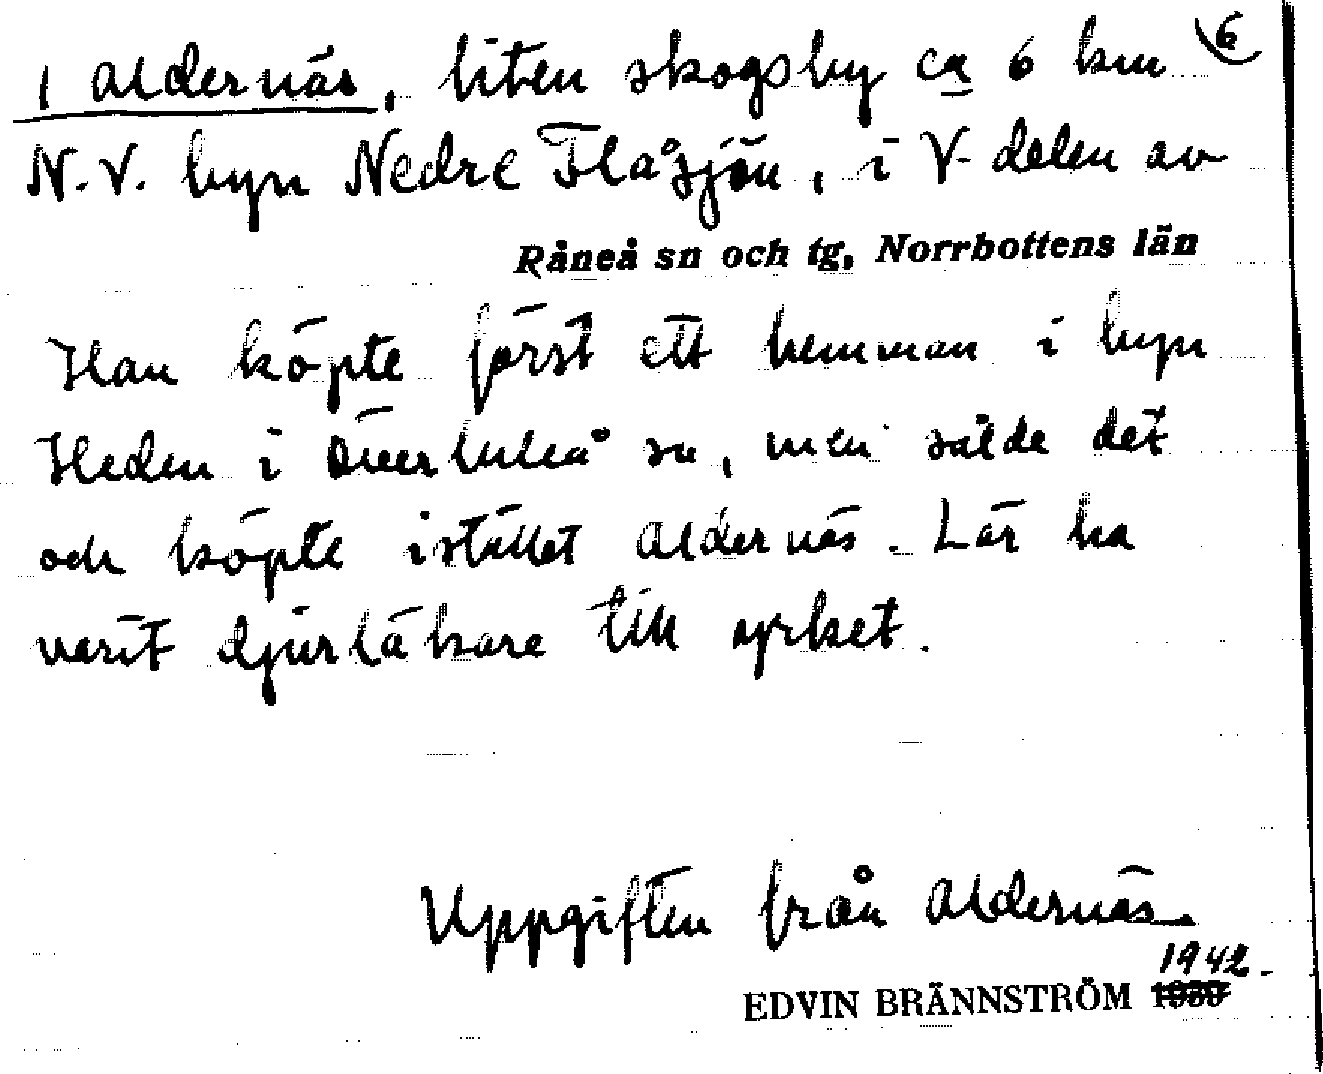 6
i Aldernäs, liten skogsby ca 6 km
N.V. byn Nedre Flåsjön, i V delen av
Råneå sn och tg, Norrbottens län
Han köpte först ett hemman i byn
Heden i Överluleå sn, men sålde det
och köpte istället Aldernäs. Lär ha
varit djurläkare till yrket.
Uppgiften från Aldernäs
1942.
EDVIN BRÄNNSTRÖM